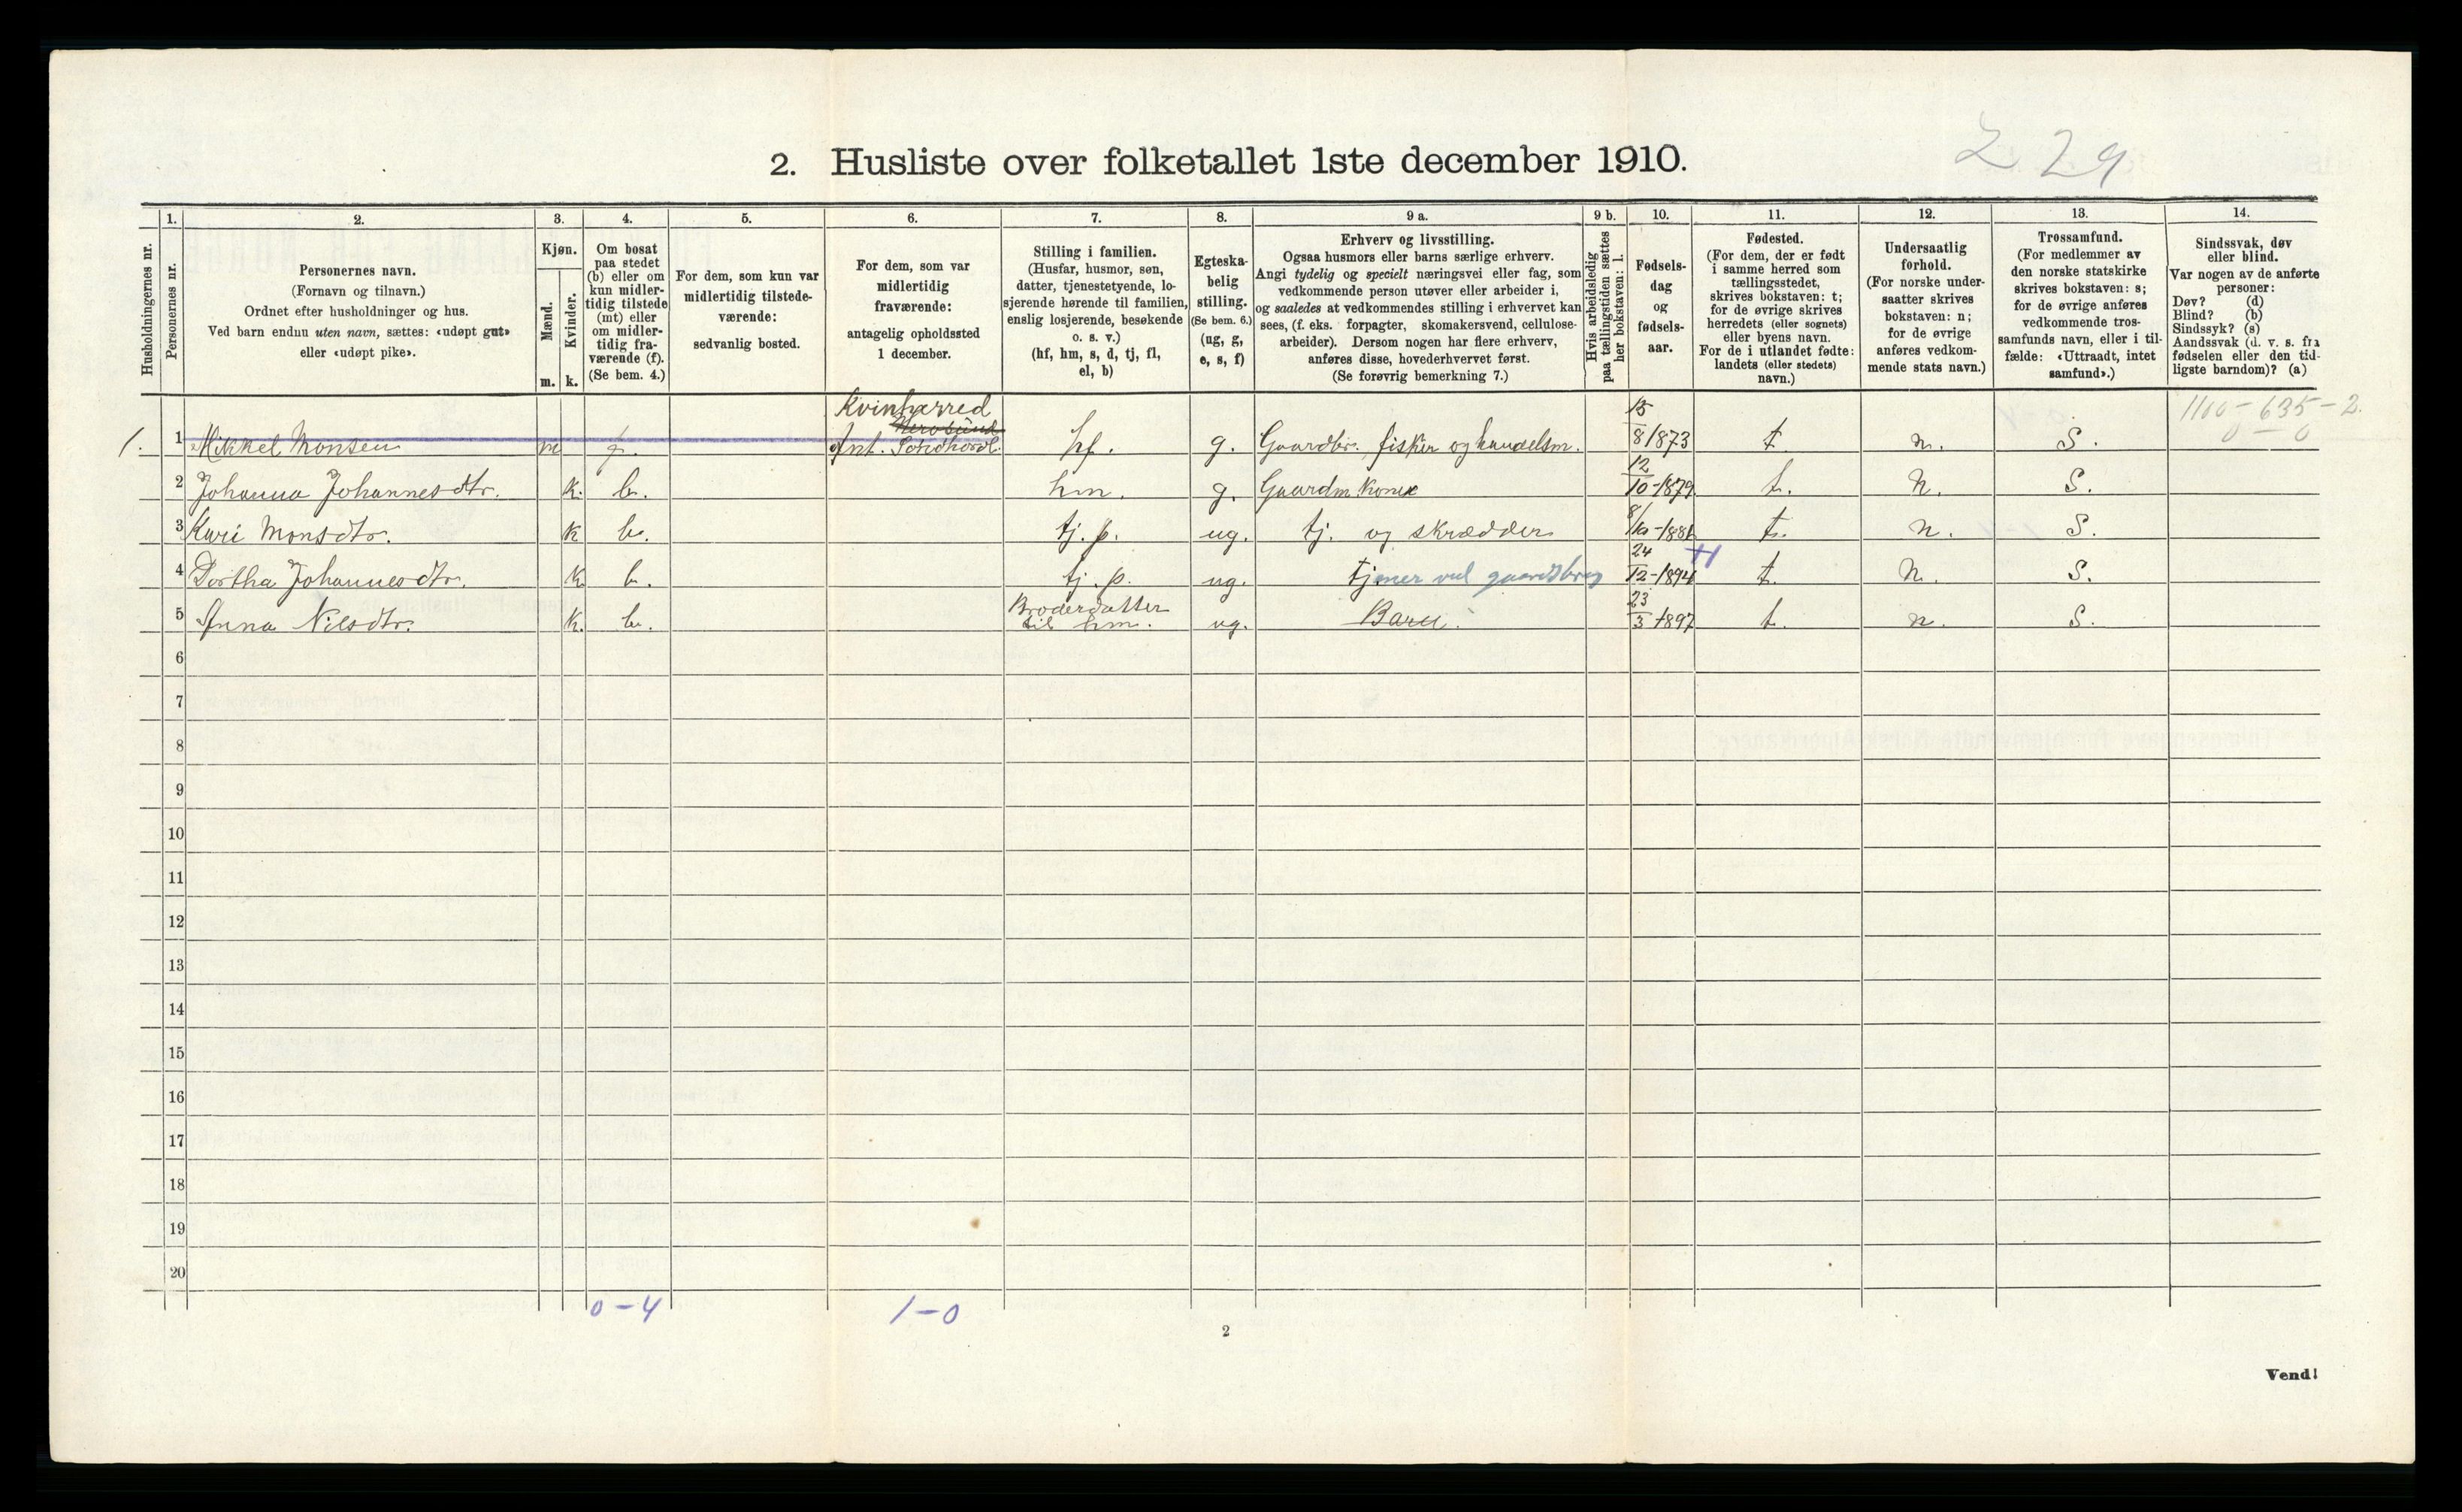 2. Husliste over folketallet 1ste december 1910.
229
1. 2. 3. 4. 5. 6. 7. 8. 9 a. 9 b. 10. 11. 12. 13. 14.
Husholdningernes nr.
Personernes nr.
Personernes navn.
(Fornavn og tilnavn.)
Ordnet efter husholdninger og hus.
Ved barn endnu uten navn, sættes: «udøpt gut»
eller «udøpt pike».
Kjøn.
Mænd.
Kvinder.
m. k.
Om bosat
paa stedet
(b) eller om
kun midler-
tidig tilstede
(mt) eller
om midler-
tidig fra-
værende (f).
(Se bem. 4.)
For dem, som kun var
midlertidig tilstede-
værende:
sedvanlig bosted.
For dem, som var
midlertidig
fraværende:
antagelig opholdssted
1 december.
Stilling i familien.
(Husfar, husmor, søn,
datter, tjenestetyende, lo-
sjerende hørende til familien,
enslig losjerende, besøkende
o. s. v.)
(hf, hm, s, d, tj, fl,
el, b)
Egteska-
belig
stilling.
(Se bem. 6.)
(ug, g,
e, s, f)
Erhverv og livsstilling.
Ogsaa husmors eller barns særlige erhverv.
Angi tydelig og specielt næringsvei eller fag, som
vedkommende person utøver eller arbeider i,
og saaledes at vedkommendes stilling i erhvervet kan
sees, (f. eks. forpagter, skomakersvend, cellulose-
arbeider). Dersom nogen har flere erhverv,
anføres disse, hovederhvervet først.
(Se forøvrig bemerkning 7.)
Hvis arbeidsledig
paa tællingstiden sættes
her bokstaven: l.
Fødsels-
dag
og
fødsels-
aar.
Fødested.
(For dem, der er født
i samme herred som
tællingsstedet,
skrives bokstaven: t;
for de øvrige skrives
herredets (eller sognets)
eller byens navn.
For de i utlandet fødte:
landets (eller stedets)
navn.)
Undersaatlig
forhold.
(For norske under-
saatter skrives
bokstaven: n;
for de øvrige
anføres vedkom-
mende stats navn.)
Trossamfund.
(For medlemmer av
den norske statskirke
skrives bokstaven: s;
for de øvrige anføres
vedkommende tros-
samfunds navn, eller i til-
fælde: «Uttraadt, intet
samfund».)
Sindssvak, døv
eller blind.
Var nogen av de anførte
personer:
Døv? (d)
Blind? (b)
Sindssyk? (s)
Aandssvak (d. v. s. fra
fødselen eller den tid-
ligste barndom)? (a)
Kvinherred
1100-635-2.
0-0
1. 1 Mikkel Monsen m f. Ant. Søndhordl. hf. g. Gaardbr. fisker og handelsm. 15/8 1873 t. n. S.
2 Johanna Johannesdtr. k. b. hm. g. Gaardm kone 12/10-1879 t. n. S.
3 Kari Monsdtr. k b. tj. p. ug. tj. og skrædder 8/10-1881 t. n. S.
4 Dortha Johannesdtr. k b. tj. p. ug. tjener ved gaardsbrug 24/12-1894 t. n. S.
5 Anna Nilsdtr. k. b. Broderdatter til hm. ug. Barn. 23/3 1897 t. n. S.
6
7
8
9
10
11
12
13
14
15
16
17
18
19
20
0-4 1-0
2
Vend!